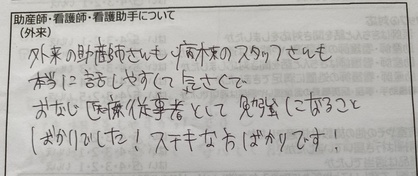 助産師・看護師・看護助手について
（外来）
外来の助産師さんも病棟のスタッフさんも
本当に話しやすくて気さくで
おなじ医療従事者として勉強になること
ばかりでした！ステキな方ばかりです！